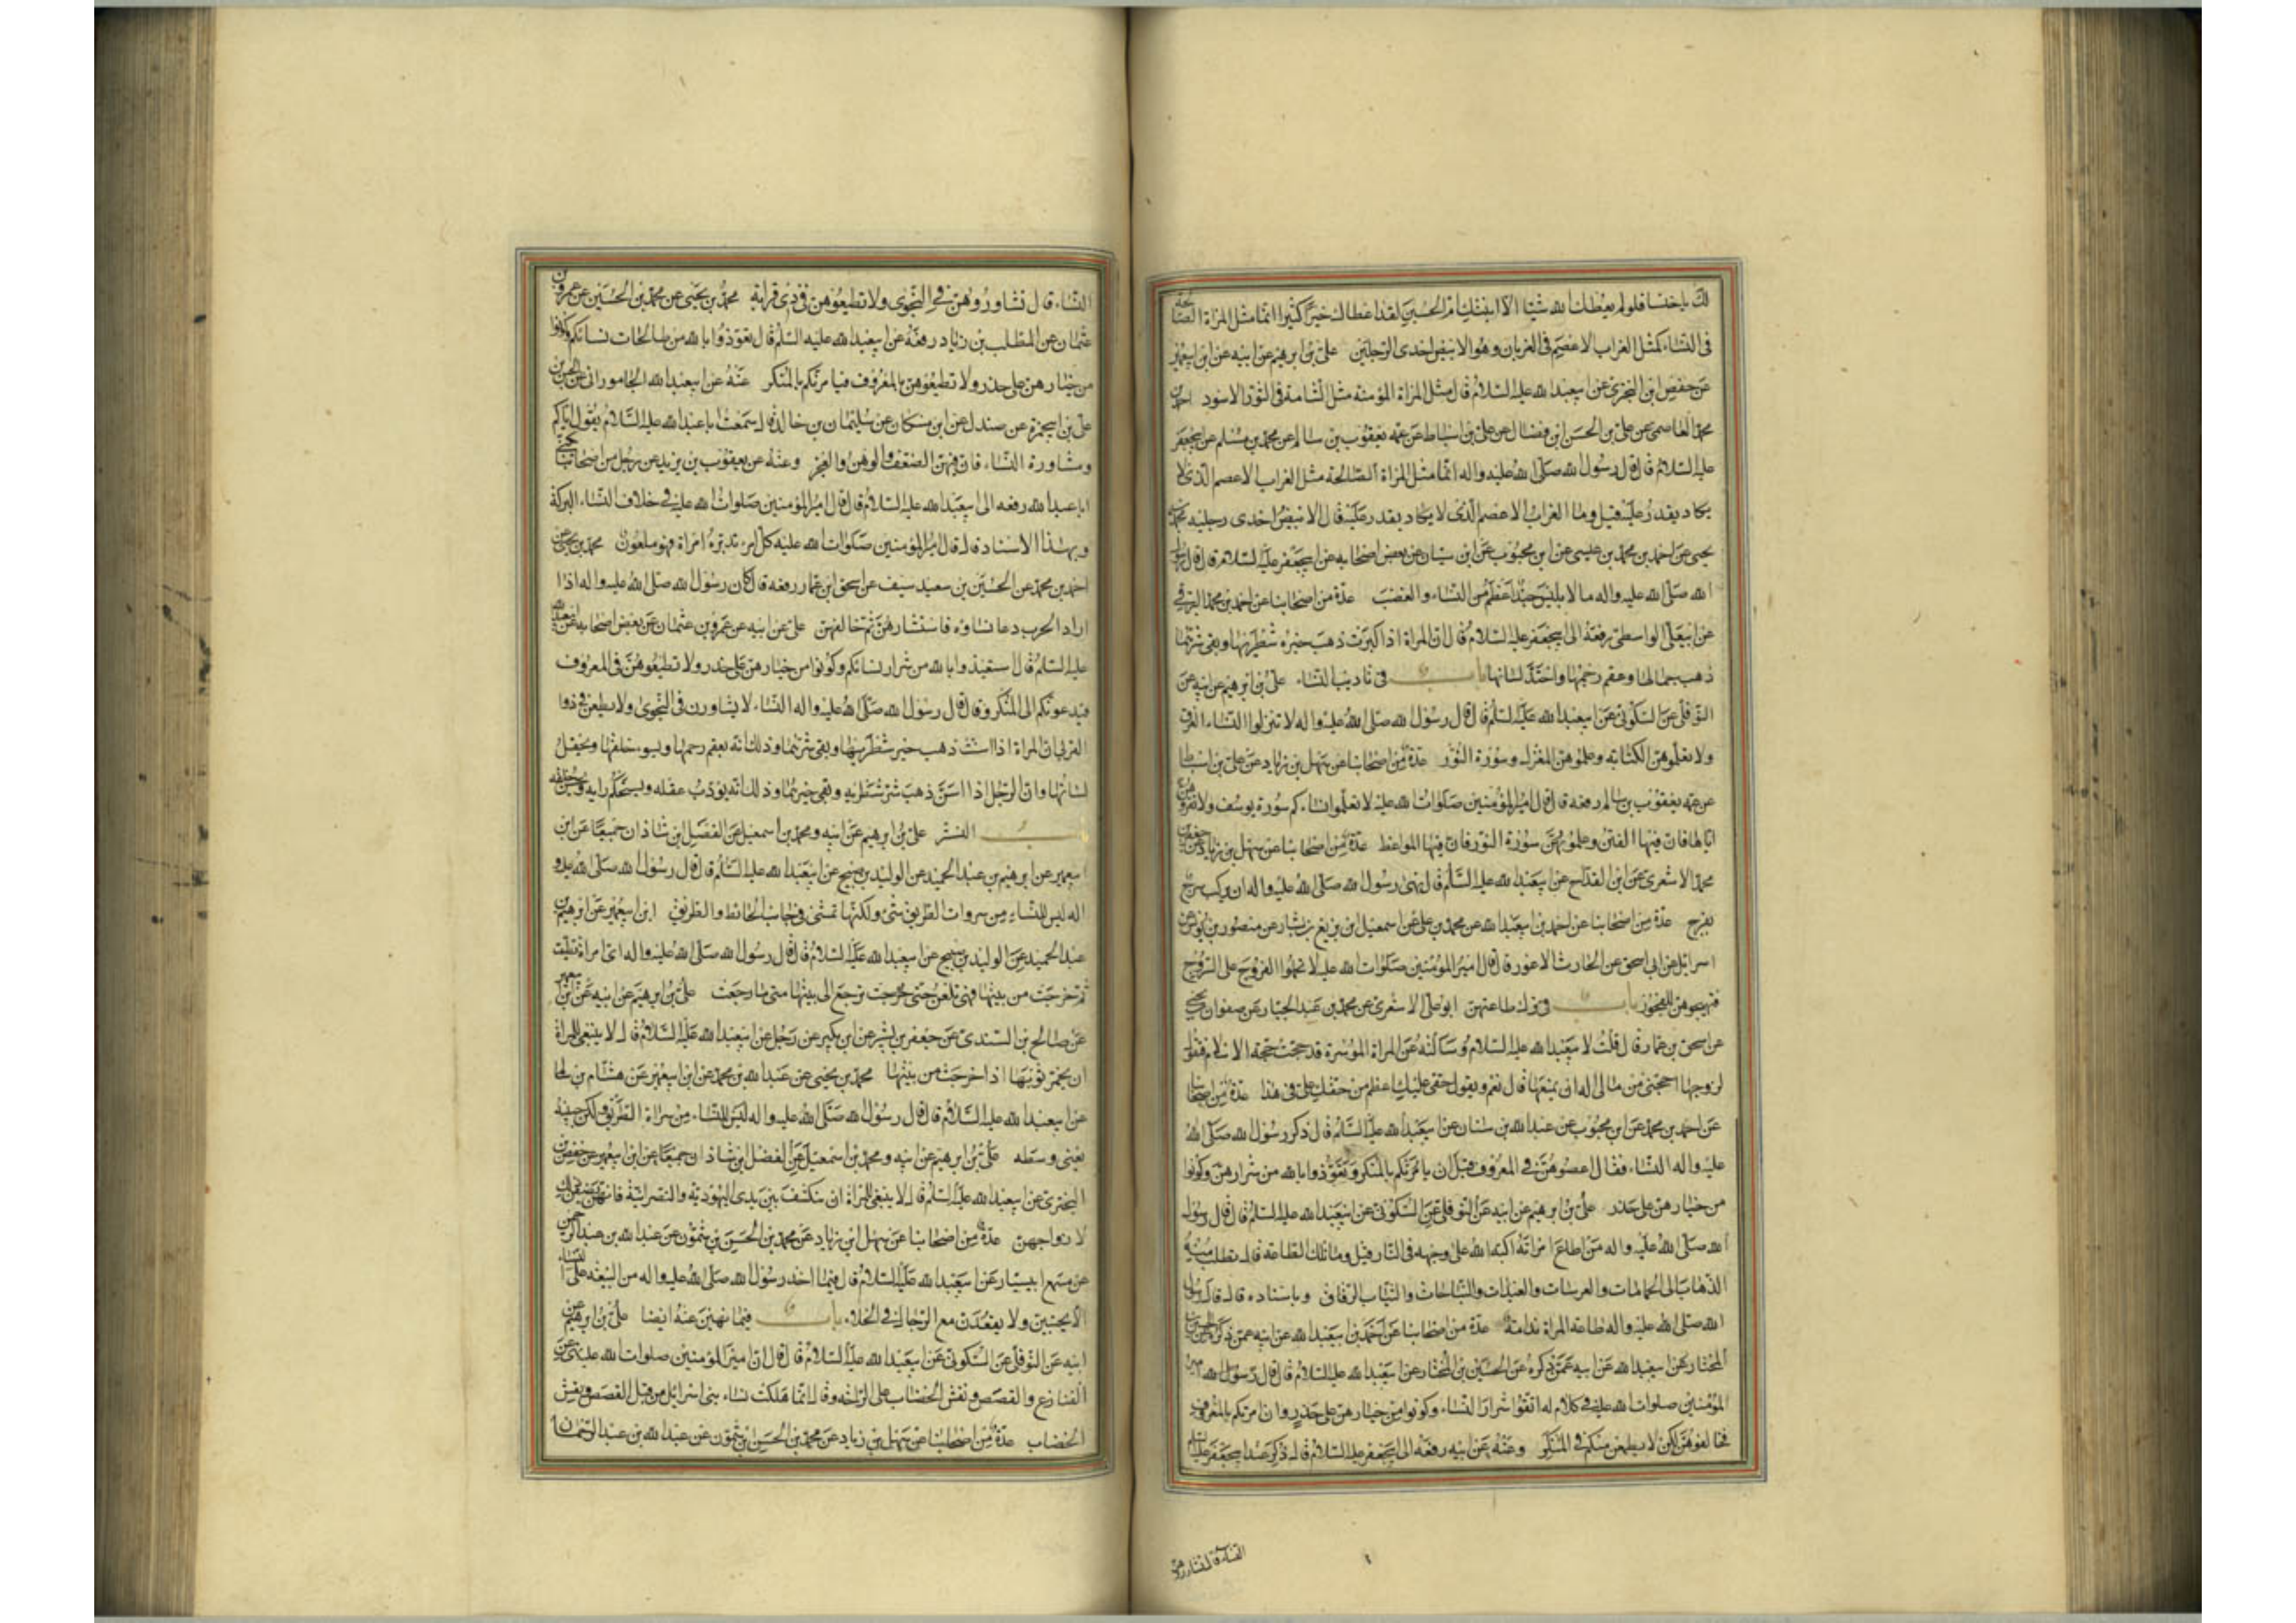 لك يا خنسا فلو لم يعطك الله شيئا الا ابنتك ام الحسين لقد اعطاك خيرا كثيرا انما مثل المراة الصالحة
فى النساء كمثل الغراب الاعصم فى الغربان وهو الابيض احدى الرجلين على بن ابرهيم عن ابيه عن ابن ابيعمير
عن حفص ابن البخترى عن ابيعبد الله عليه السلام قال مثل المراة المؤمنة مثل الشامة فى الثور الاسود احمد بن
محمد العاصمى عن على بن الحسن ابن فضال عن على بن اسباط عن عمه يعقوب بن سالم عن محمد بن مسلم عن ابيجعفر
عليه السلام قال قال رسول الله صلى الله عليه واله انما مثل المراة الصالحة مثل الغراب الاعصم الذى لا
يكاد يقدر عليه قيل وما الغراب الاعصم الذى لا يكاد يقدر عليه قال الابيض احدى رجليه محمد بن
يحيى عن احمد بن محمد بن عيسى عن ابن محبوب عن ابن سنان عن بعض اصحابه عن ابيجعفر عليه السلام قال قال رسول
الله صلى الله عليه واله ما لابليس جند اعظم من النساء والغضب عدة من اصحابنا عن احمد بن محمد البرقى
عن ابيعلى الواسطى رفعه الى ابيجعفر عليه السلام قال ان المراة اذا كبرت ذهب خير شطريها وبقى شرهما
ذهب جمالها وعقم رحمها واحتد لسانها باب فى تاديب النساء على بن ابرهيم عن ابيه عن
النوفلى عن السكونى عن ابيعبد الله عليه السلم قال قال رسول الله صلى الله عليه واله لا تنزلوا النساء الغرف
ولا تعلموهن الكتابة وعلموهن المغزل وسورة النور عدة من اصحابنا عن سهل بن زياد عن على بن اسباط
عن عمه يعقوب بن سالم رفعه قال قال امير المؤمنين صلوات الله عليه لا تعلموا نساءكم سورة يوسف ولا تقروهن
اياها فان فيها الفتن وعلموهن سورة النور فان فيها المواعظ عدة من اصحابنا عن سهل بن زياد عن جعفر بن
محمد الاشعرى عن ابن القداح عن ابيعبد الله عليه السلم قال نهى رسول الله صلى الله عليه واله ان يركب سرج
بفرج عدة من اصحابنا عن احمد بن ابيعبد الله عن محمد بن على عن اسمعيل ابن بشار عن منصور بن يونس عن
اسرائيل عن ابى اسحق عن الحارث الاعور قال قال امير المؤمنين صلوات الله عليه لا تحملوا الفروج على السروج
فتهيجوهن للفجور باب فى ترك طاعتهن ابو على الاشعرى عن محمد بن عبد الجبار عن صفوان بن يحيى
عن اسحق بن عمار قال قلت لابيعبد الله عليه السلام وسالته عن المراة الموسرة قد حجت حجة الاسلام فتقول
لزوجها احجنى من مالى اله ان يمنعها قال نعم ويقول حقى عليك اعظم من حقك على فى هذا عدة من اصحابنا
عن احمد بن محمد عن ابن محبوب عن عبد الله بن سنان عن ابيعبد الله عليه السلم قال ذكر رسول الله صلى الله
عليه واله النساء فقال اعصوهن فى المعروف قبل ان يامرنكم بالمنكر وتعوذوا بالله من شرارهن وكونوا
من خيارهن على حذر على بن ابرهيم عن ابيه عن النوفلى عن السكونى عن ابيعبد الله عليه السلم قال قال رسول
الله صلى الله عليه واله من اطاع امراته اكبه الله على وجهه فى النار قيل وما تلك الطاعة قال تطلب منه
الذهاب الى الحمامات والعرسات والعيدات والنياحات والثياب الرقاق وباسناده قال قال رسول
الله صلى الله عليه واله طاعة المراة ندامة عدة من اصحابنا عن احمد بن ابيعبد الله عن ابيه عمن ذكره عن الحسين بن
المختار عن ابيعبد الله عن ابيه عمن ذكره عن الحسين بن المختار عن ابيعبد الله عليه السلام قال قال امير
المؤمنين صلوات الله عليه فى كلام له اتقوا شرار النساء وكونوا من خيارهن على حذر وان امرنكم بالمعروف
فخالفوهن لكن لا يطمعن منكم فى المنكر وعنه عن ابيه رفعه الى ابيجعفر عليه السلام قال ذكر عند ابيجعفر عليه السلم
النساء فقال
النساء قال تشاوروهن فى النجوى ولا تطيعوهن فى ذى قرابة محمد بن يحيى عن محمد بن الحسين عن عمرو بن
عثمان عن المطلب بن زياد رفعه عن ابيعبد الله عليه السلم قال تعوذوا بالله من طالحات نسائكم وكونوا
من خيارهن على حذر ولا تطيعوهن بالمعروف فيامرنكم بالمنكر عنه عن ابيعبد الله الجامورانى عن الحسن بن
على بن ابيحمزة عن صندل عن ابن مسكان عن سليمان بن خالد قال سمعت ابا عبد الله عليه السلام يقول اياكم
ومشاورة النساء فان فيهن الضعف والوهن والعجز وعنه عن يعقوب بن يزيد عن رجل من اصحابنا يكنى
ابا عبد الله رفعه الى ابيعبد الله عليه السلام قال قال امير المؤمنين صلوات الله عليه فى خلاف النساء البركة
وبهذا الاسناد قال قال امير المؤمنين صلوات الله عليه كل امرء تدبره امراة فهو ملعون محمد بن يحيى عن
احمد بن محمد عن الحسين بن سعيد سيف عن اسحق ابن عمار رفعه قال كان رسول الله صلى الله عليه واله اذا
اراد الحرب دعا نساؤه فاستشارهن ثم خالفهن على عن ابيه عن عمرو بن عثمان عن بعض اصحابه عن ابيعبد الله
عليه السلم قال استعيذوا بالله من شرار نسائكم وكونوا من خيارهن على حذر ولا تطيعوهن فى المعروف
فيدعونكم الى المنكر وقال قال رسول الله صلى الله عليه واله النساء لا يشاورن فى النجوى ولا يطعن فى ذوى
القربى ان المراة اذا اسنت ذهب خير شطريها وبقى شرهما وذلك انه يعقم رحمها ويسوء خلقها ويحتد
لسانها وان الرجل اذا اسن ذهب شر شطريه وبقى خيرهما وذلك انه يؤدب عقله ويستحكم رايه ويحسن خلقه
باب التستر على بن ابرهيم عن ابيه ومحمد بن اسمعيل عن الفضل ابن شاذان جميعا عن ابن
ابيعمير عن ابرهيم بن عبد الحميد عن الوليد بن صبيح عن ابيعبد الله عليه السلم قال قال رسول الله صلى الله عليه و
اله ليس للنساء من سروات الطريق شىء ولكنها تمشى فى جانب الحائط والطريق ابن ابيعمير عن ابرهيم بن
عبد الحميد عن الوليد بن صبيح عن ابيعبد الله عليه السلام قال قال رسول الله صلى الله عليه واله اى امراة تطيبت
ثم خرجت من بيتها فهى تلعن حتى ترجع الى بيتها متى ما رجعت على بن ابرهيم عن ابيه عن ابن ابيعمير
عن صالح بن السندى عن جعفر بن بشير عن ابن بكير عن رجل عن ابيعبد الله عليه السلام قال لا ينبغى للمراة
ان يجمر ثوبها اذا خرجت من بيتها محمد بن يحيى عن عبد الله بن محمد عن ابن ابيعمير عن هشام بن سالم
عن ابيعبد الله عليه السلام قال قال رسول الله صلى الله عليه واله ليس للنساء من سراة الطريق ولكن جنبيه
يعنى وسطه على بن ابرهيم عن ابيه ومحمد بن اسمعيل عن الفضل بن شاذان جميعا عن ابن ابيعمير عن حفص بن
البخترى عن ابيعبد الله عليه السلم قال لا ينبغى للمراة ان ينكشف بين يدى اليهودية والنصرانية فانهن يصفن ذلك
لازواجهن عدة من اصحابنا عن سهل ابن زياد عن محمد بن الحسن بن شمون عن عبد الله بن عبد الرحمن
عن مسمع ابيسيار عن ابيعبد الله عليه السلام قال فيما اخذ رسول الله صلى الله عليه واله من البيعة على النساء
الا يحتبين ولا يقعدن مع الرجال فى الخلاء باب فيما نهين عنه ايضا على بن ابرهيم عن
ابيه عن النوفلى عن السكونى عن ابيعبد الله عليه السلام قال قال ان امير المؤمنين صلوات الله عليه نهى عن
القنازع والقصص ونقش الخضاب على الراحة وقال انما هلكت نساء بنى اسرائيل من قبل القصص ونقش
الخضاب عدة من اصحابنا عن سهل بن زياد عن محمد بن الحسن بن شمون عن عبد الله بن عبد الرحمن